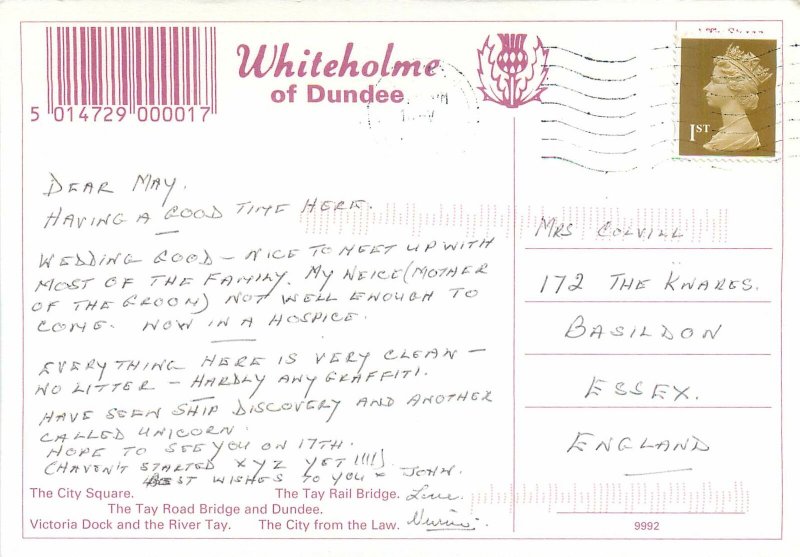 Whiteholme
of Dundee
5 014729 000017
1ST
DEAR MAY.
HAVING A GOOD TIME HERE.
WEDDING GOOD – NICE TO MEET UP WITH
MOST OF THE FAMILY. MY NEICE (MOTHER
OF THE GROOM) NOT WELL ENOUGH TO
COME. NOW IN A HOSPICE.
EVERYTHING HERE IS VERY CLEAN –
NO LITTER – HARDLY ANY GRAFFITI.
HAVE SEEN SHIP DISCOVERY AND ANOTHER
CALLED UNICORN.
HOPE TO SEE YOU ON 17TH.
(HAVEN'T STARTED XYZ YET !!!!)
BEST WISHES TO YOU & JOHN.
Love
MRS COLVILL
172 THE KNARES.
BASILDON
ESSEX.
ENGLAND
The City Square. The Tay Rail Bridge.
The Tay Road Bridge and Dundee.
Victoria Dock and the River Tay. The City from the Law.
9992